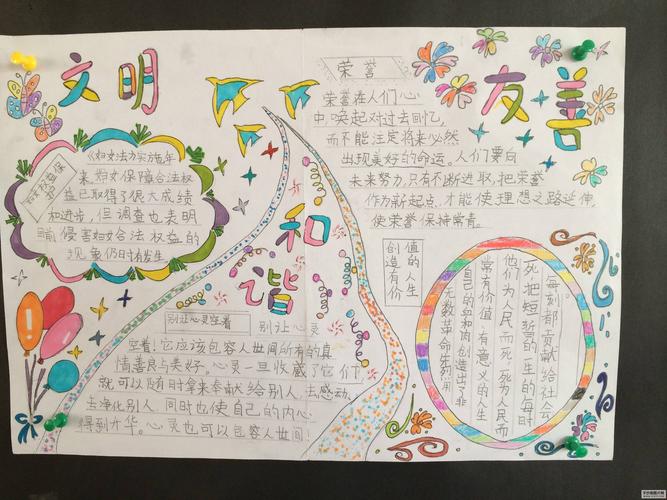 文明
和谐
友善
《妇女法》实施年
来,妇女保障合法权
益已取得了很大成绩
和进步,但调查也表明
侵害妇女合法权益的
现象仍时有发生
别让心灵空着
别让心灵
空着!它应该包容人世间所有的真
情善良与美好。心灵一旦收藏了它们
就可以随时拿来奉献给别人,去感动、
去净化别人,同时也使自己的内心
得到升华。心灵也可以包容人世间
荣誉
荣誉在人们心
中,唤起对过去回忆,
而不能注定将来必然
出现美好的命运。人们要向
未来努力,只有不断进取,把荣誉
作为新起点,才能使理想之路延伸,
使荣誉保持常青。
创造有价
值的人生
无数革命先烈用
自己的血和肉创造出了非
常有价值,有意义的人生
他们为人民而死,死为人民而
死,把短暂的一生的每时
每刻都贡献给社会